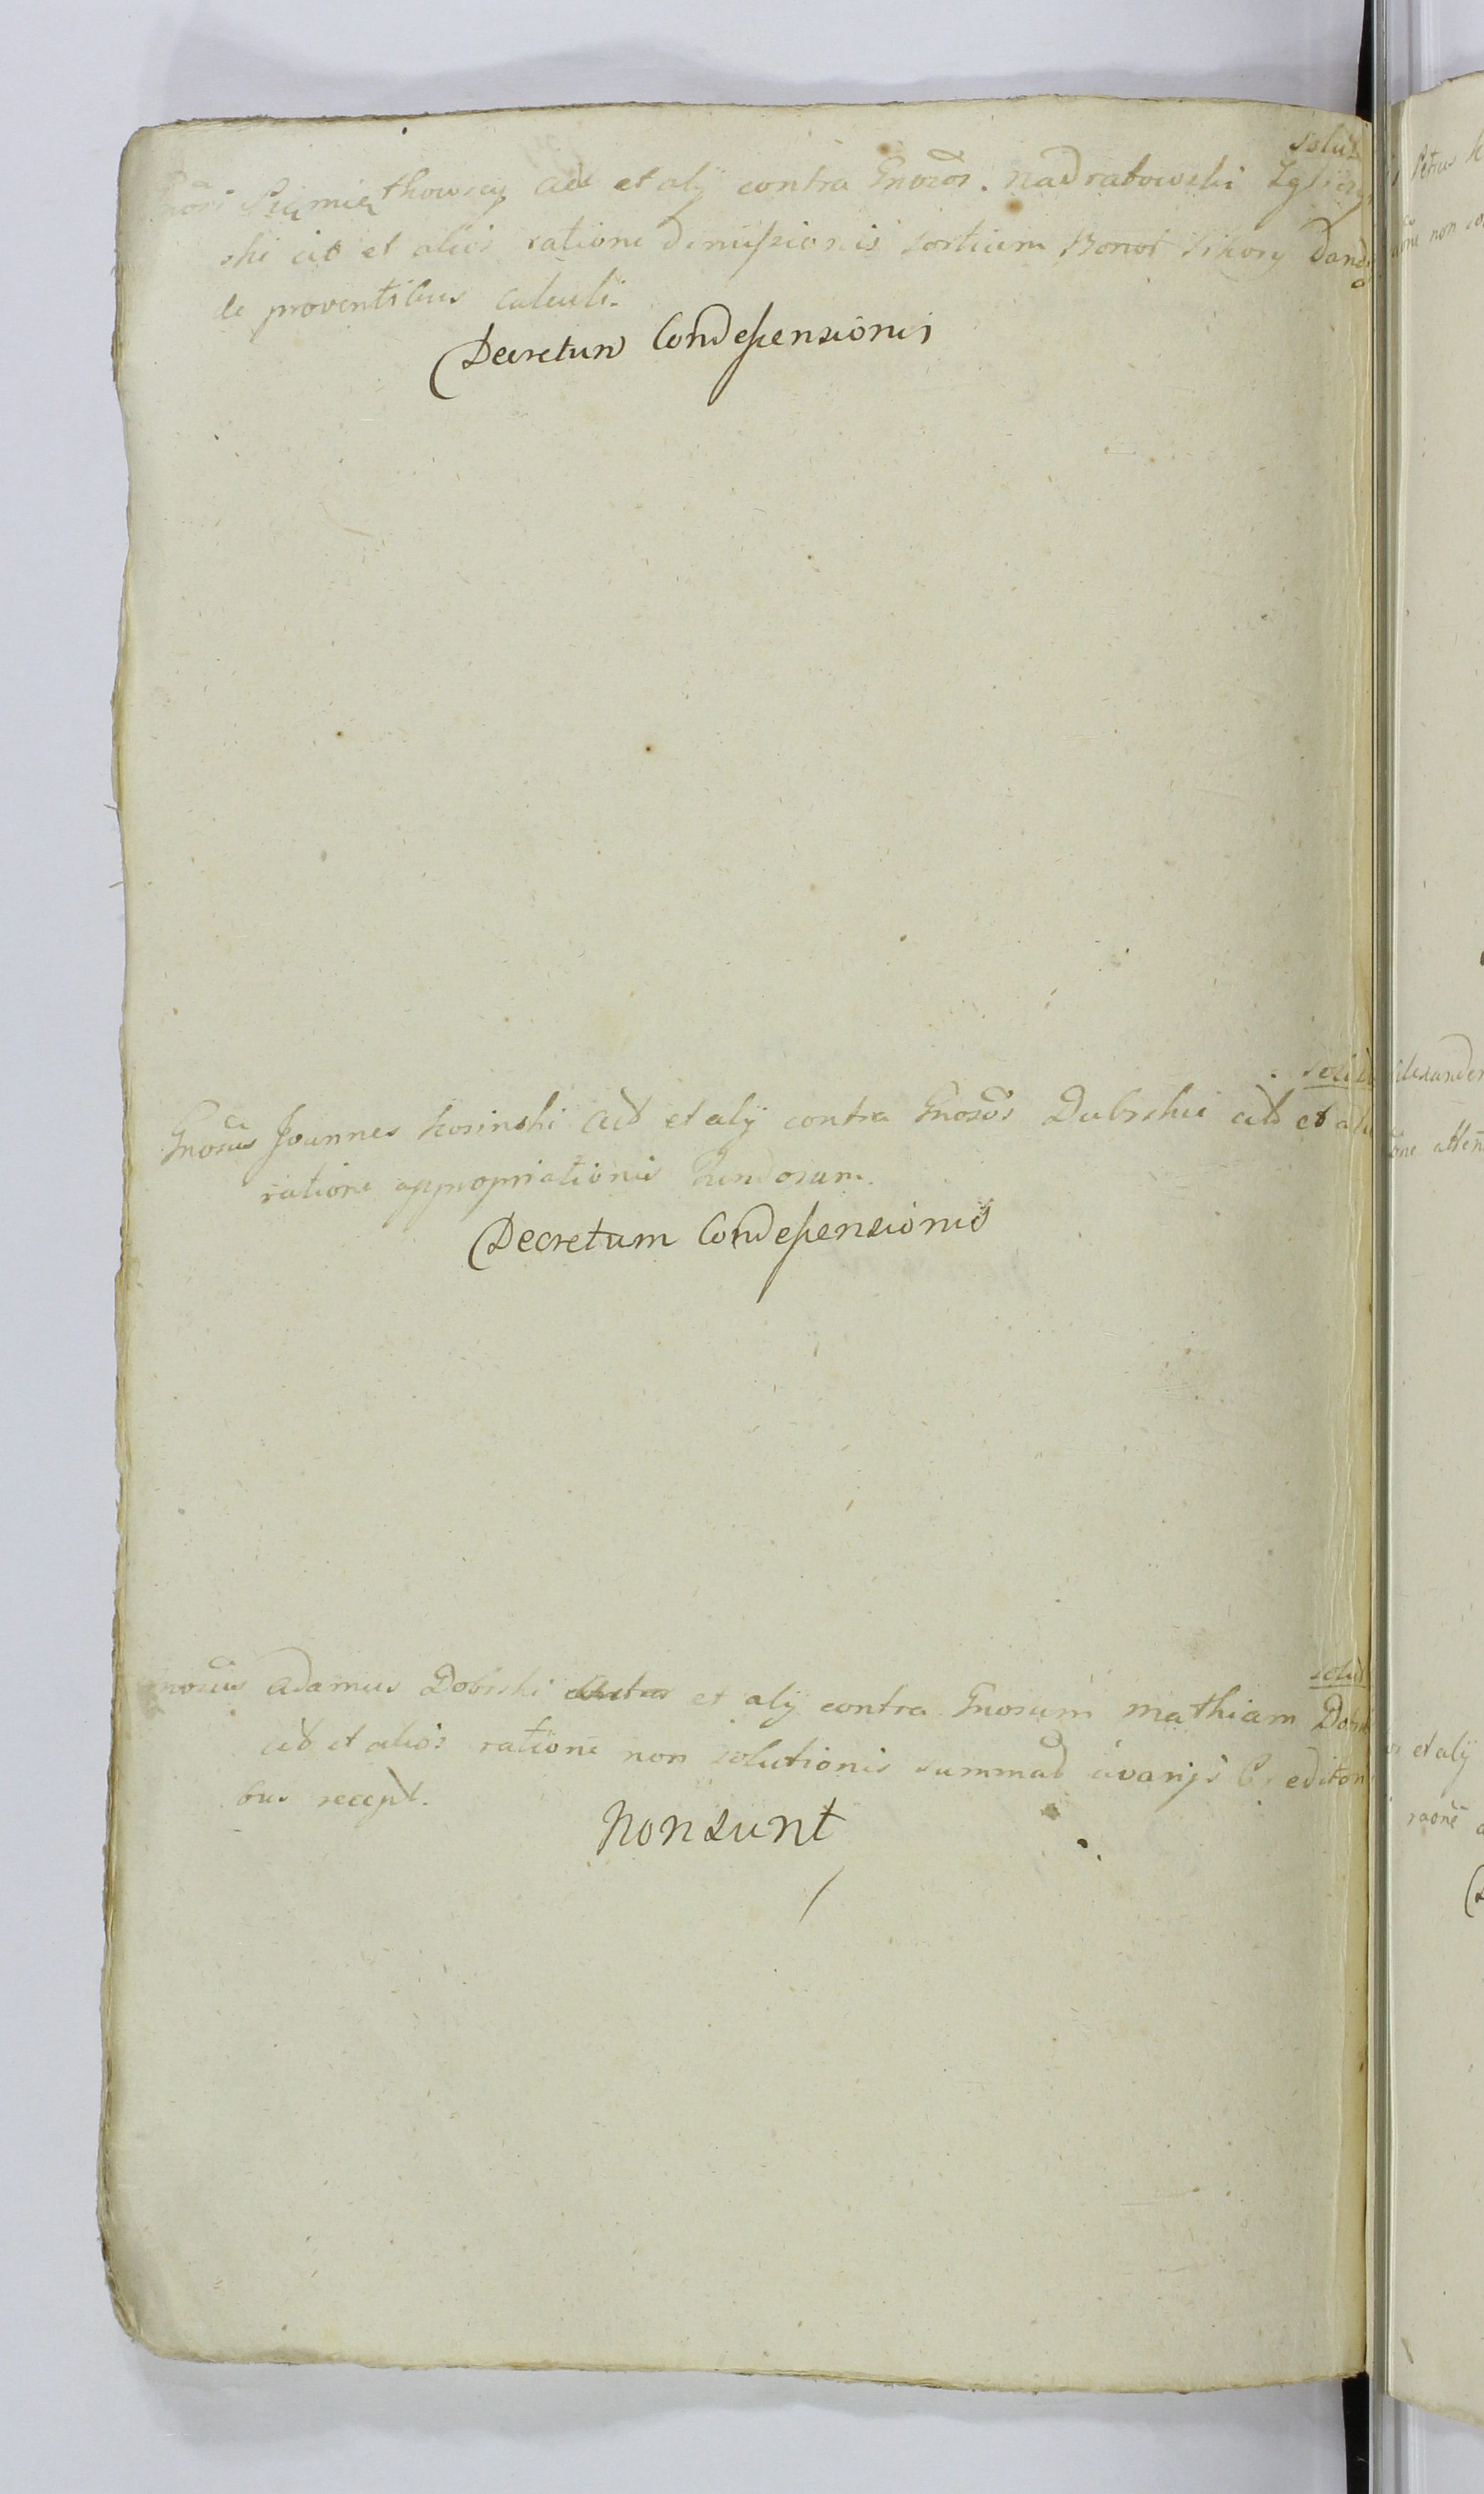 solut
Gnosi Siemiąthowscy act et alÿ contra Gnosos. nadratowski Zglicz
ski cit et alios ratione dimissionis sortium Bonor Sikory dand
de proventibus calculi.
Decretum Condescensionis
solut
Gnosus Joannes kosinski act et alÿ contra Gnosos Dubrskii cit et ali
ratione appropriationis fundorum.
Decretum Condescensionis
solut
Gnosus adamus Dobrski et alÿ contra Gnosum mathiam Dobrs
cit et alios ratione non solutionis summad avarijs Creditori
bus recept.
Non sunt
Petrus
non
Alexander
et alÿ
raone